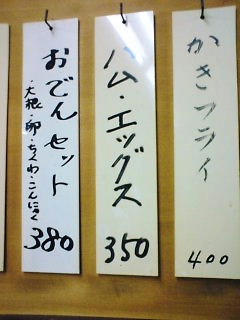 かきフライ
400
ハム・エッグス
350
おでんセット
・大根・卵・ちくわ・こんにゃく
380